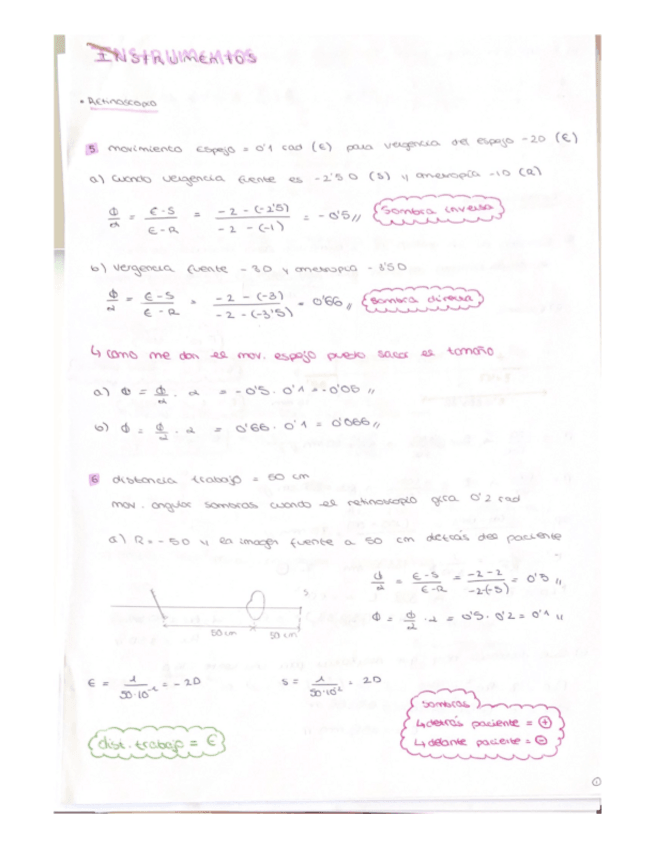 INSTRUMENTOS
• Retinoscopio
5 movimiento espejo = 0'1 rad (E) para vergencia del espejo -2D (E)
a) cuando vergencia fuente es -2'50 (S) y ametropía -1D (R)
Φ/α = E-S/E-R = -2-(-2'5)/-2-(-1) = -0'5,, Sombra inversa
b) vergencia fuente -3D y ametropía -3'50
Φ/α = E-S/E-R = -2-(-3)/-2-(-3'5) = 0'66,, Sombra directa
↳ como me dan el mov. espejo puedo sacar el tamaño
a) Φ = Φ/α · α = -0'5 · 0'1 = -0'05,,
b) Φ = Φ/α · α = 0'66 · 0'1 = 0'066,,
6 distancia trabajo = 50 cm
mov. angular sombras cuando el retinoscopio gira 0'2 rad
a) R = -5D y la imagen fuente a 50 cm detrás del paciente
Φ/α = E-S/E-R = -2-2/-2-(-5) = 0'5,,
Φ = Φ/α · α = 0'5 · 0'2 = 0'1,,
S
50 cm 50 cm
E = 1/50·10⁻² = -2D S = 1/50·10⁻² = 2D
dist. trabajo = E
sombras
↳ detrás paciente = +
↳ delante paciente = -
1